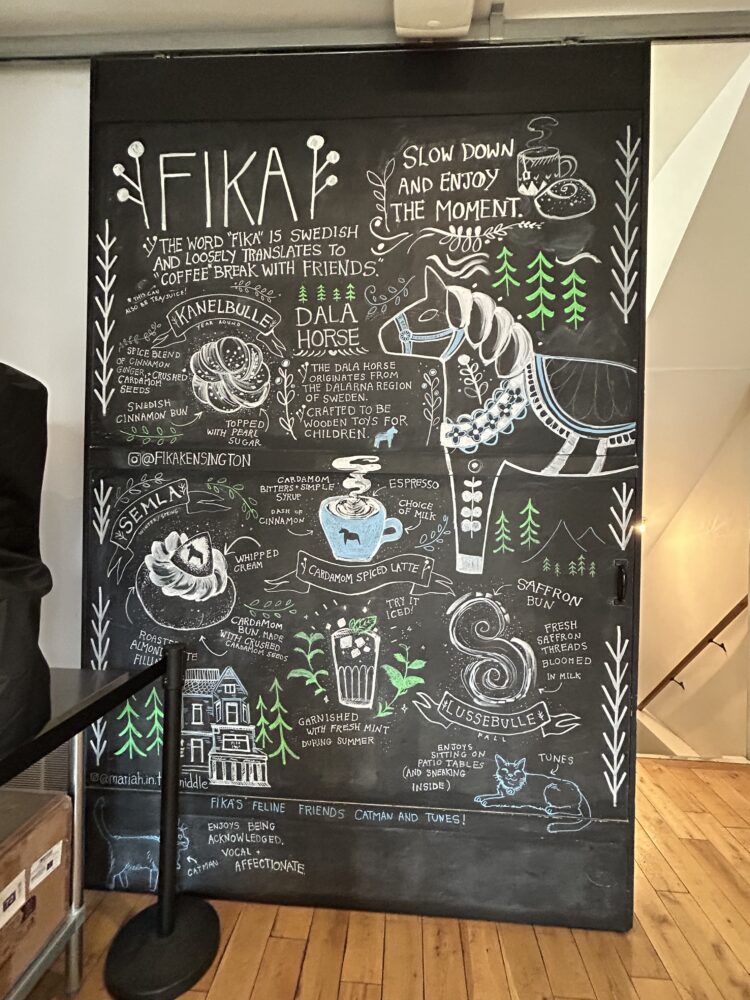 FIKA
"THE WORD "FIKA" IS SWEDISH
AND LOOSELY TRANSLATES TO
"COFFEE" BREAK WITH FRIENDS."
* THIS CAN
ALSO BE TEA/JUICE!
SLOW DOWN
AND ENJOY
THE MOMENT.
KANELBULLE
YEAR ROUND
SPICE BLEND
OF CINNAMON
GINGER, + CRUSHED
CARDAMOM
SEEDS
SWEDISH
CINNAMON BUN
TOPPED
WITH PEARL
SUGAR
DALA
HORSE
THE DALA HORSE
ORIGINATES FROM
THE DALARNA REGION
OF SWEDEN.
CRAFTED TO BE
WOODEN TOYS FOR
CHILDREN.
@FIKAKENSINGTON
SEMLA
WINTER/SPRING
WHIPPED
CREAM
CARDAMOM
BUN MADE
WITH CRUSHED
CARDAMOM SEEDS
ROASTED
ALMOND
CARDAMOM
BITTERS + SIMPLE
SYRUP
DASH OF
CINNAMON
ESPRESSO
CHOICE
OF MILK
CARDAMOM SPICED LATTE
TRY IT
ICED!
GARNISHED
WITH FRESH MINT
DURING SUMMER
SAFFRON
BUN
FRESH
SAFFRON
THREADS
BLOOMED
IN MILK
LUSSEBULLE
FALL
@mariah.in.the.middle
ENJOYS
SITTING ON
PATIO TABLES
(AND SNEAKING
INSIDE)
TUNES
FIKA'S FELINE FRIENDS CATMAN AND TUNES!
CATMAN
ENJOYS BEING
ACKNOWLEDGED.
VOCAL +
AFFECTIONATE